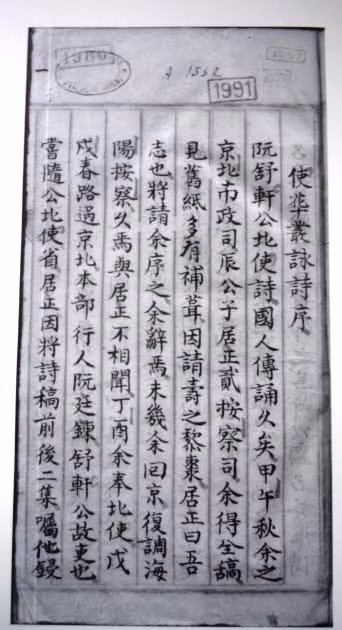 A 1552
1991
使華叢詠詩序
阮舒軒公北使詩國人傳誦久矣甲午秋余之
京北布政司辰公子居正貳按察司余得全稿
見舊紙多有補葺因請壽之黎棗居正曰吾
志也將請余序之余辭焉未幾余回京復調海
陽按察久焉與居正不相聞丁酉余奉北使戊
戌春路過京北本部行人阮廷鍊舒軒公故吏也
嘗隨公北使省居正因將詩稿前後二集囑他鋟